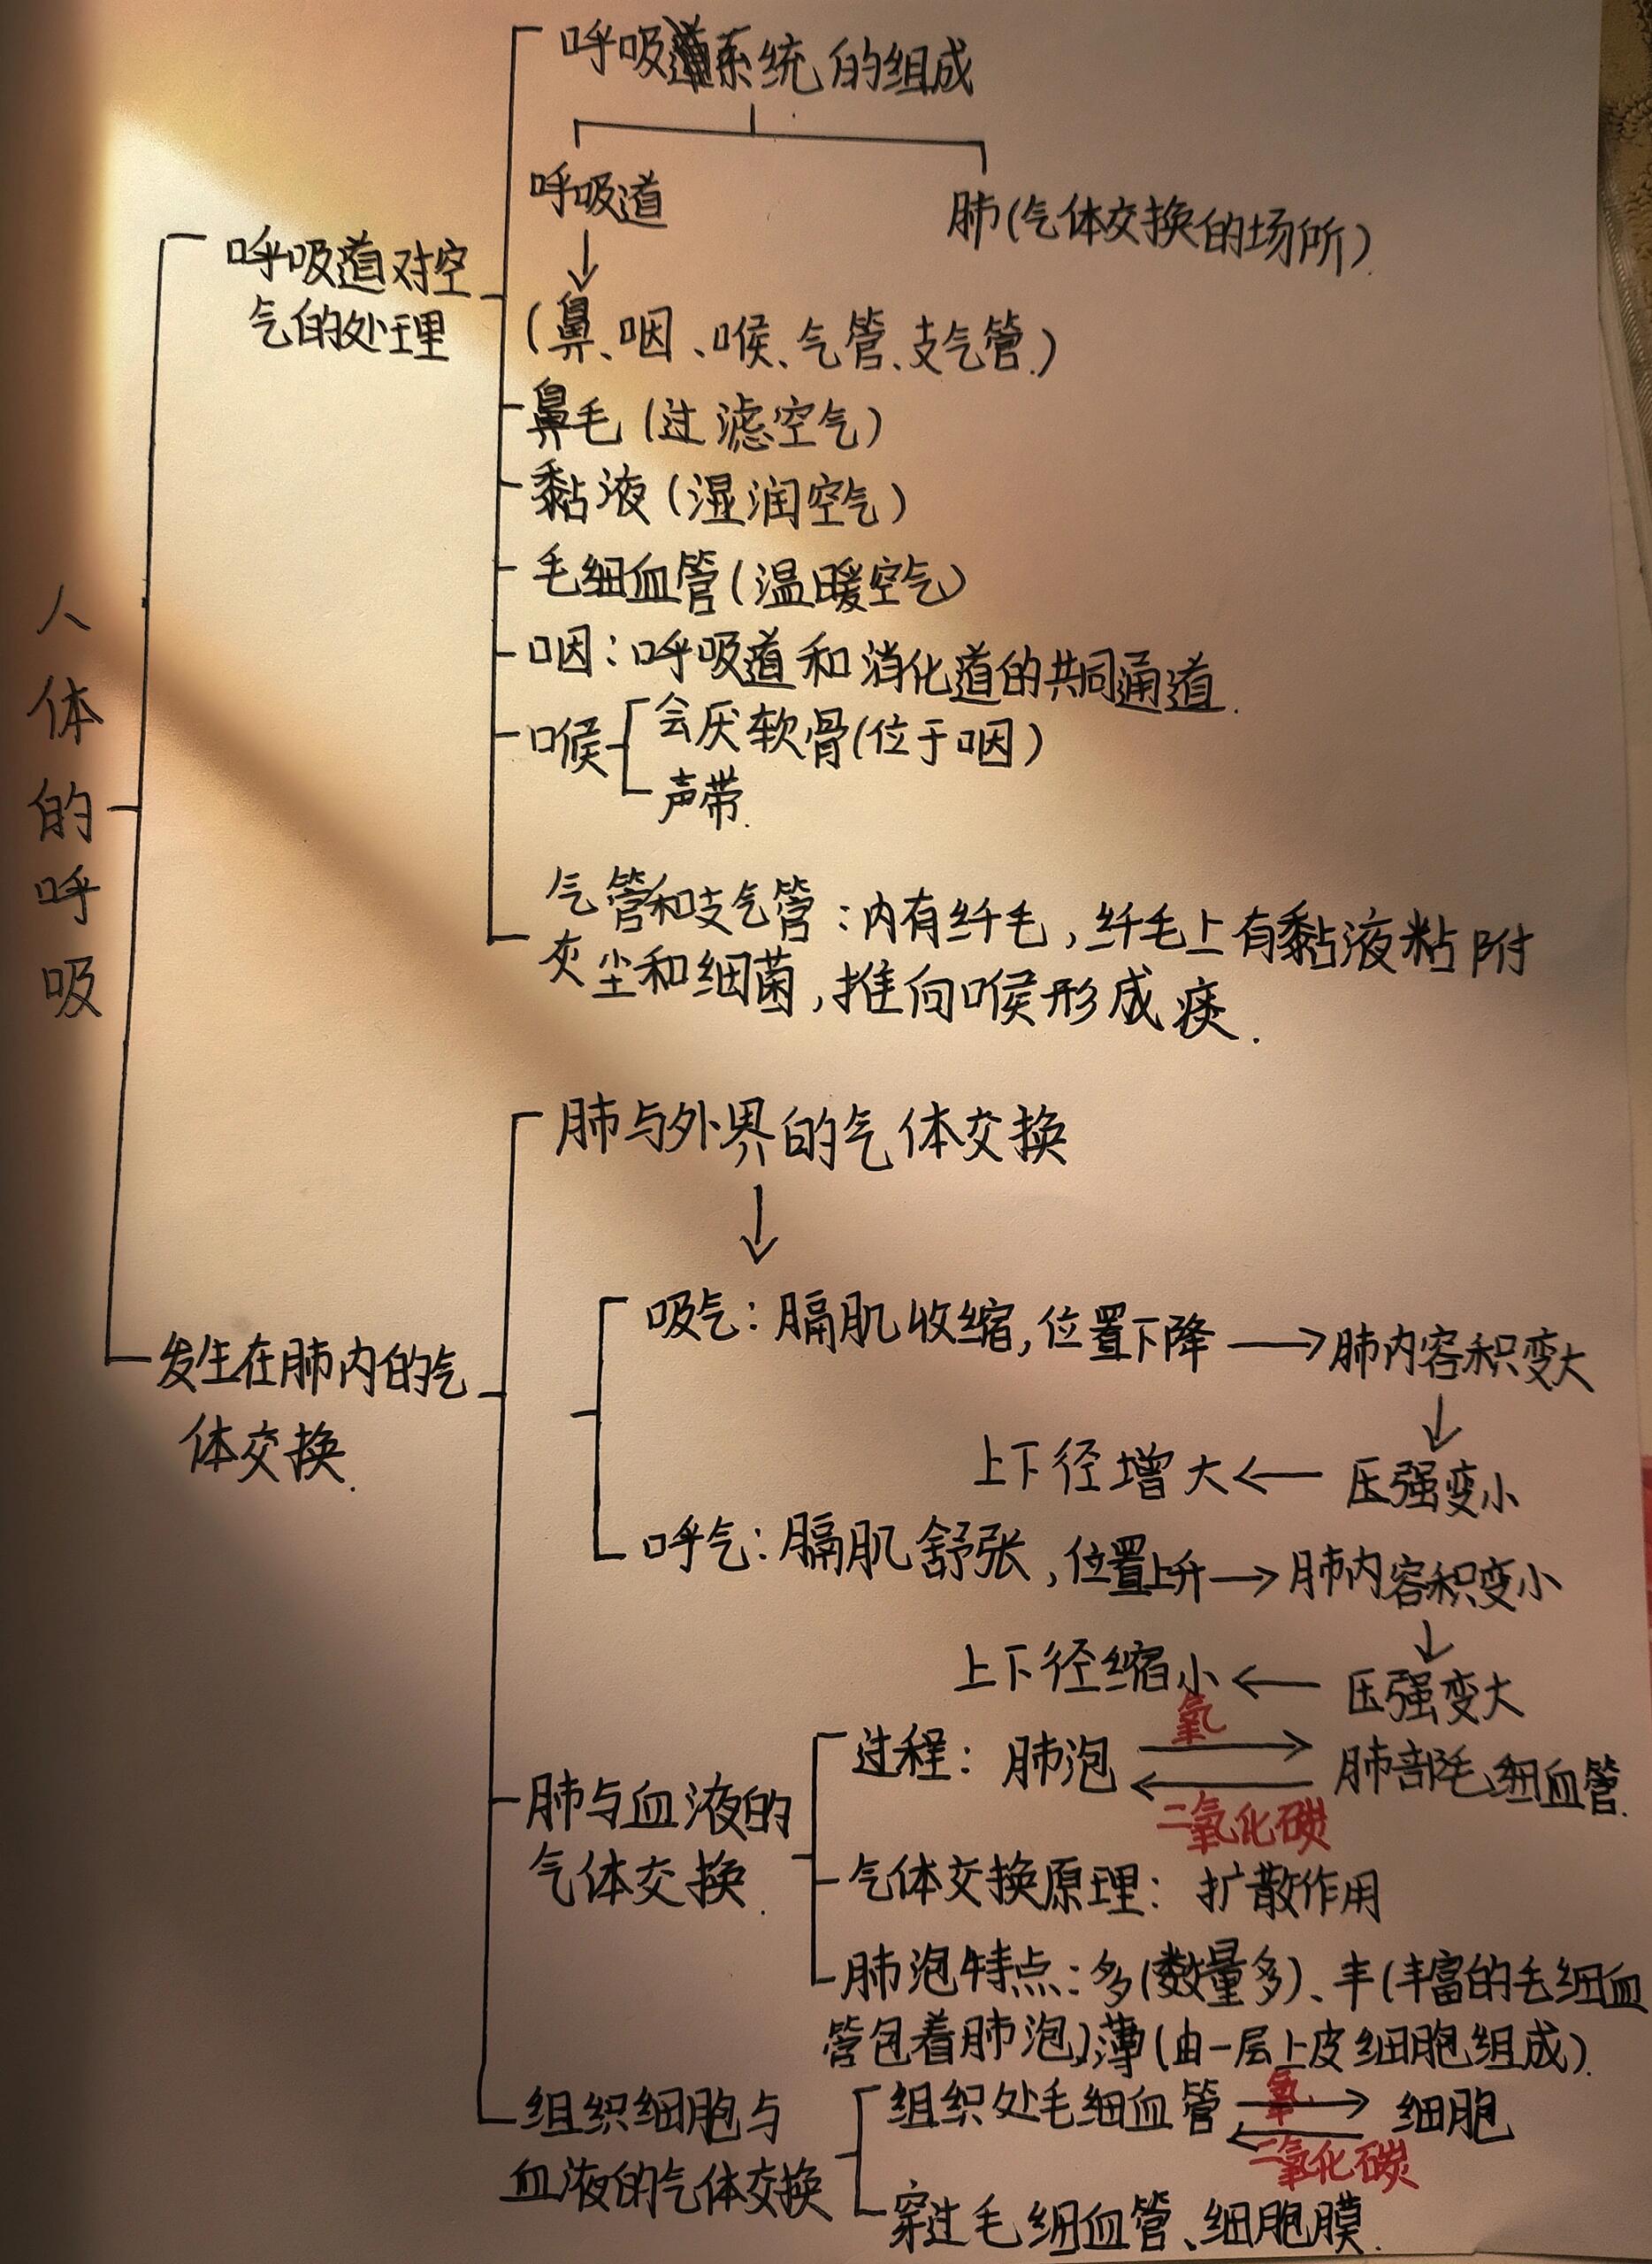 呼吸系统的组成
呼吸道
肺(气体交换的场所)
(鼻、咽、喉、气管、支气管.)
呼吸道对空
气的处理
鼻毛(过滤空气)
黏液(湿润空气)
毛细血管(温暖空气)
咽:呼吸道和消化道的共同通道.
喉
会厌软骨(位于咽)
声带.
气管和支气管:内有纤毛,纤毛上有黏液粘附
灰尘和细菌,推向喉形成痰.
人体的呼吸
发生在肺内的气
体交换.
肺与外界的气体交换
吸气:膈肌收缩,位置下降→肺内容积变大
↓
上下径增大←压强变小
呼气:膈肌舒张,位置上升→肺内容积变小
↓
上下径缩小←压强变大
肺与血液的
气体交换.
氧
过程:肺泡 肺部毛细血管.
二氧化碳
气体交换原理:扩散作用
肺泡特点:多(数量多)、丰(丰富的毛细血
管包着肺泡)薄(由一层上皮细胞组成).
组织细胞与
血液的气体交换
氧
组织处毛细血管 细胞
二氧化碳
穿过毛细血管、细胞膜.